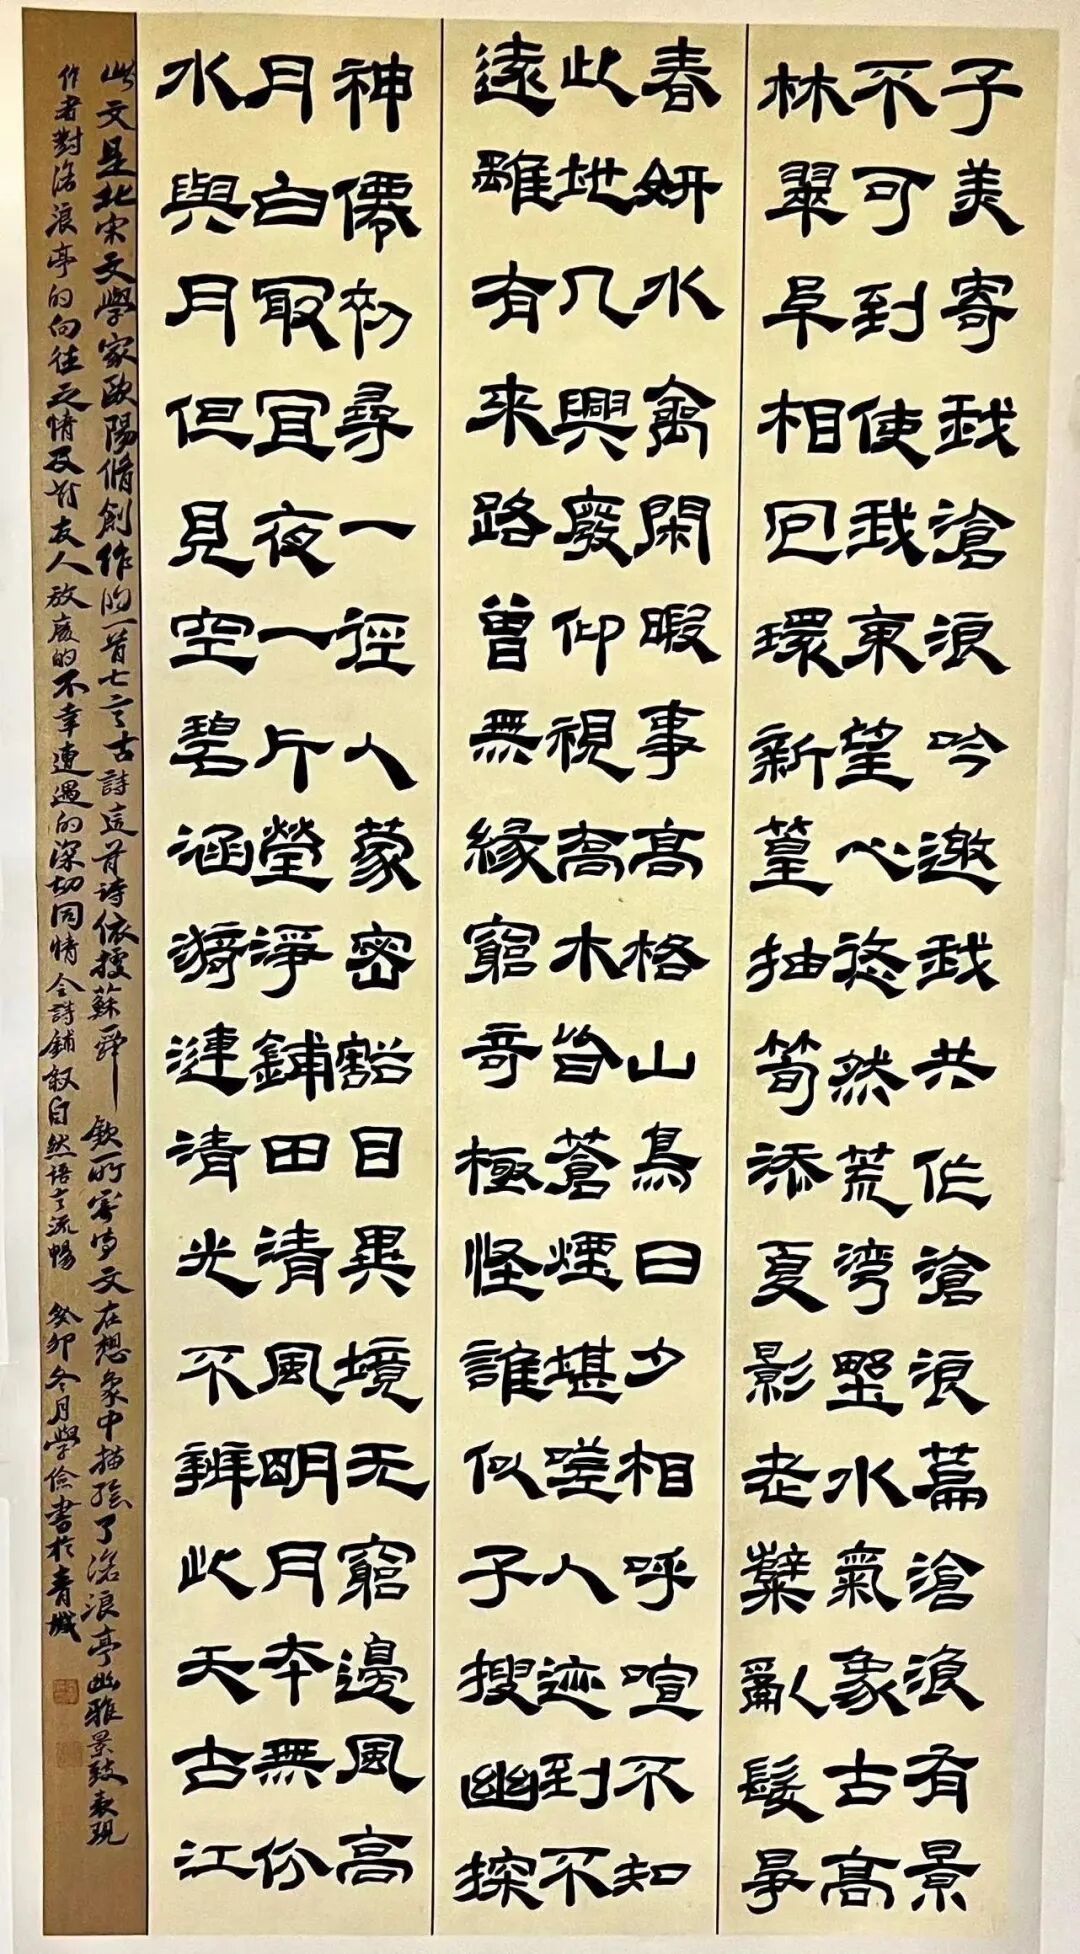 子美寄我滄浪吟邀我共作滄浪篇滄浪有景
不可到使我東望心悠然荒灣埜水氣象古高
林翠阜相回環新篁抽筍添夏影老蘖亂髮爭
春妍水禽閑暇事高格山鳥日夕相呼喧不知
此地几興廢仰視喬木皆蒼煙堪嗟人迹到不
遠雖有來路曾無緣窮奇極怪誰似子搜幽探
神僊初尋一徑入蒙密豁目異境无窮邊風高
月白冣宜夜一片瑩淨鋪田清風明月本無价
水與月但見空碧涵漪漣清光不辨此天古江
此文是北宋文學家歐陽脩創作的一首七言古詩這首詩依據蘇舜欽所寄詩文在想象中描繪了滄浪亭幽雅景致表現
作者對滄浪亭的向往之情及對友人放廢的不幸遭遇的深切同情全詩鋪叙自然語言流暢 癸卯冬月學儉書於青城